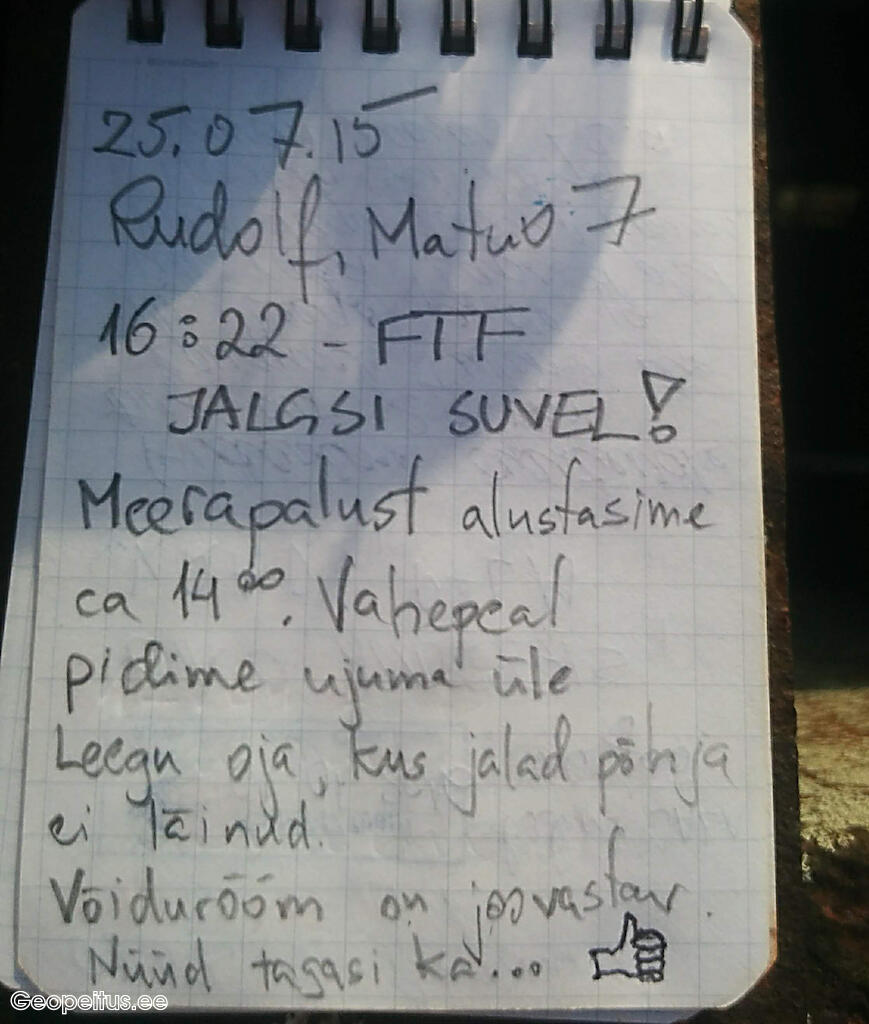 25.07.15
Rudolf, Matuo 7
16:22 - FTF
JALGSI SUVEL!
Meerapalust alustasime
ca 14⁰⁰. Vahepeal
pidime ujuma üle
Leegu oja, kus jalad põhja
ei läinud.
Võidurõõm on joovastav.
Nüüd tagasi ka...
Geopeitus.ee